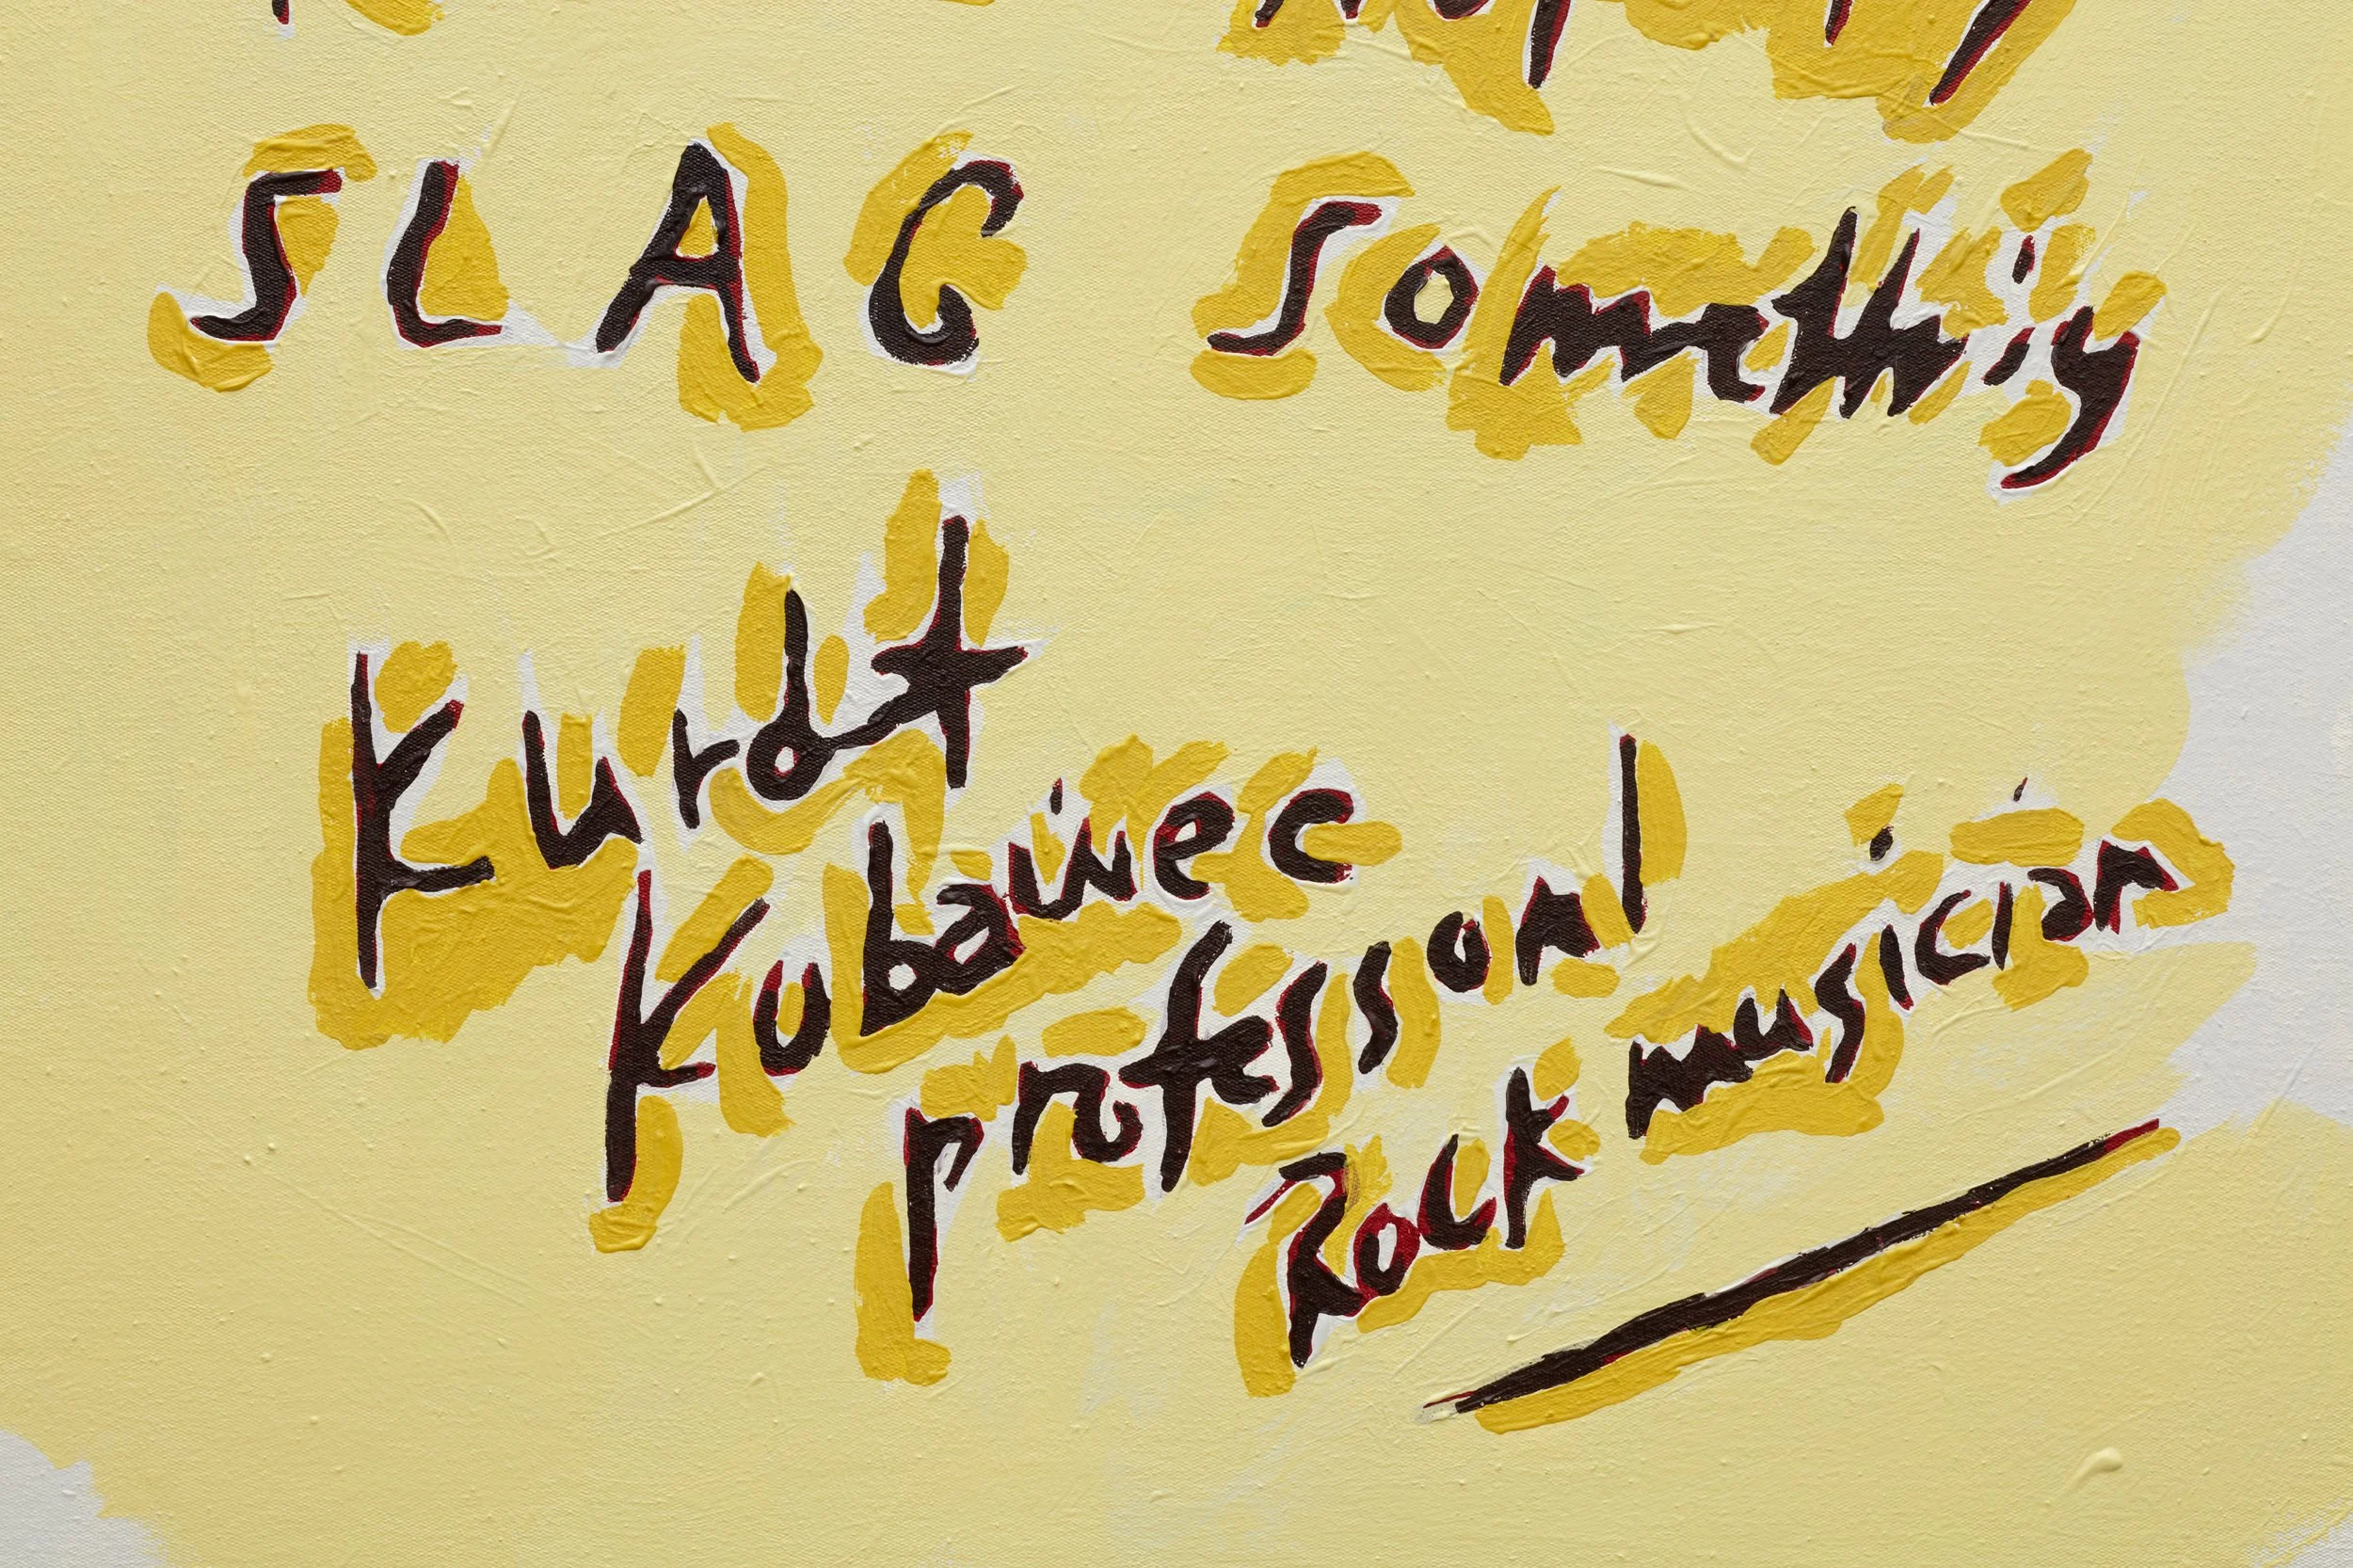 SLAG Somethiy
Kurdt
Kobaiiec
professonl
Rock musician